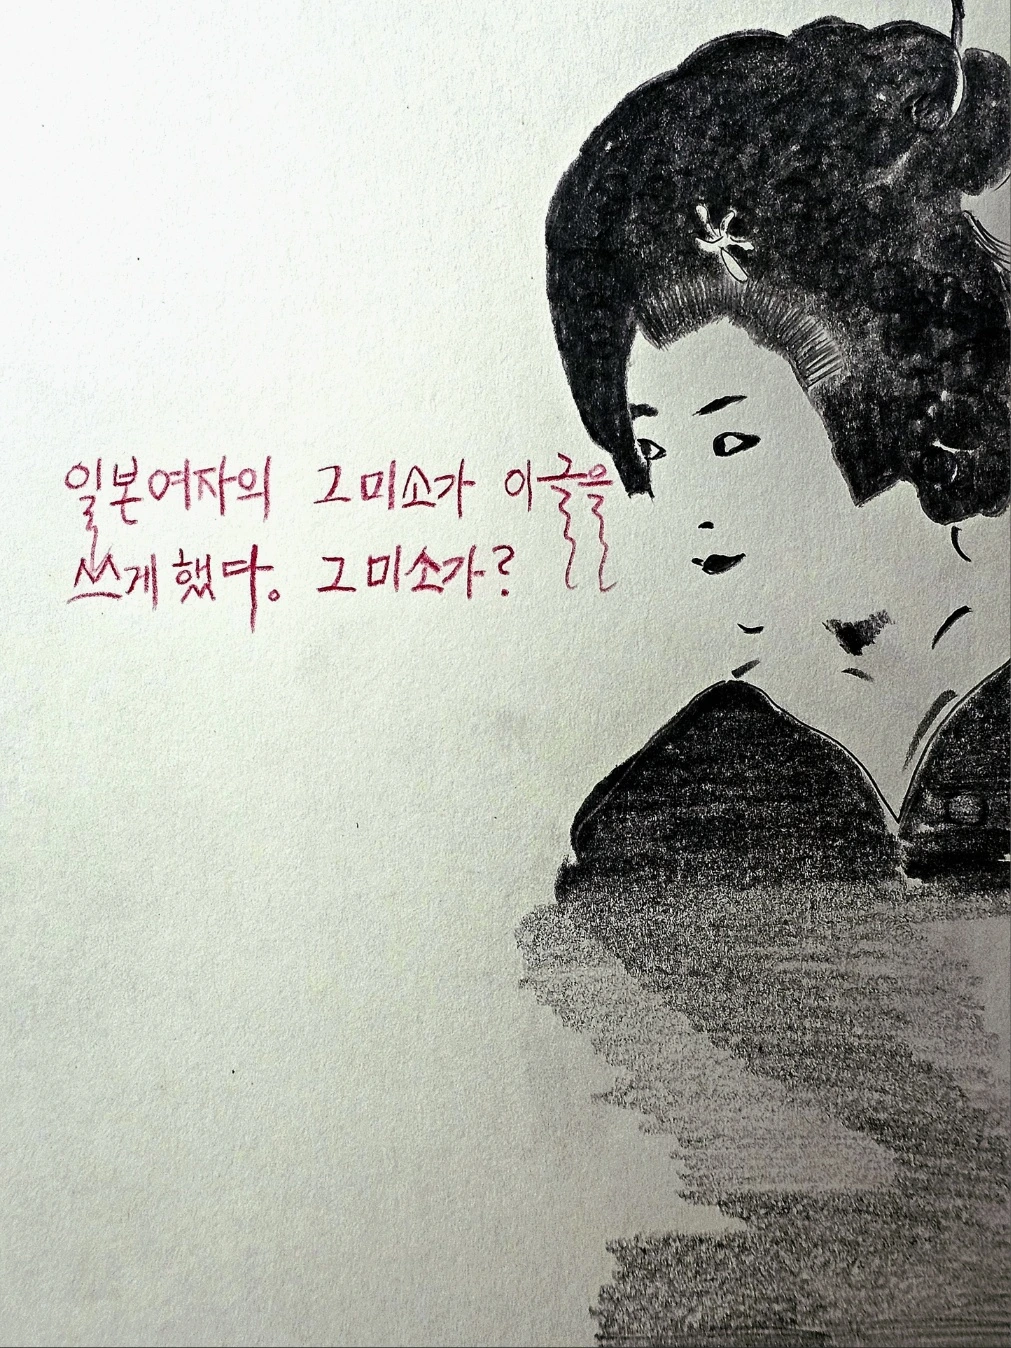 일본여자의 그미소가 이글을
쓰게 했다. 그미소가?